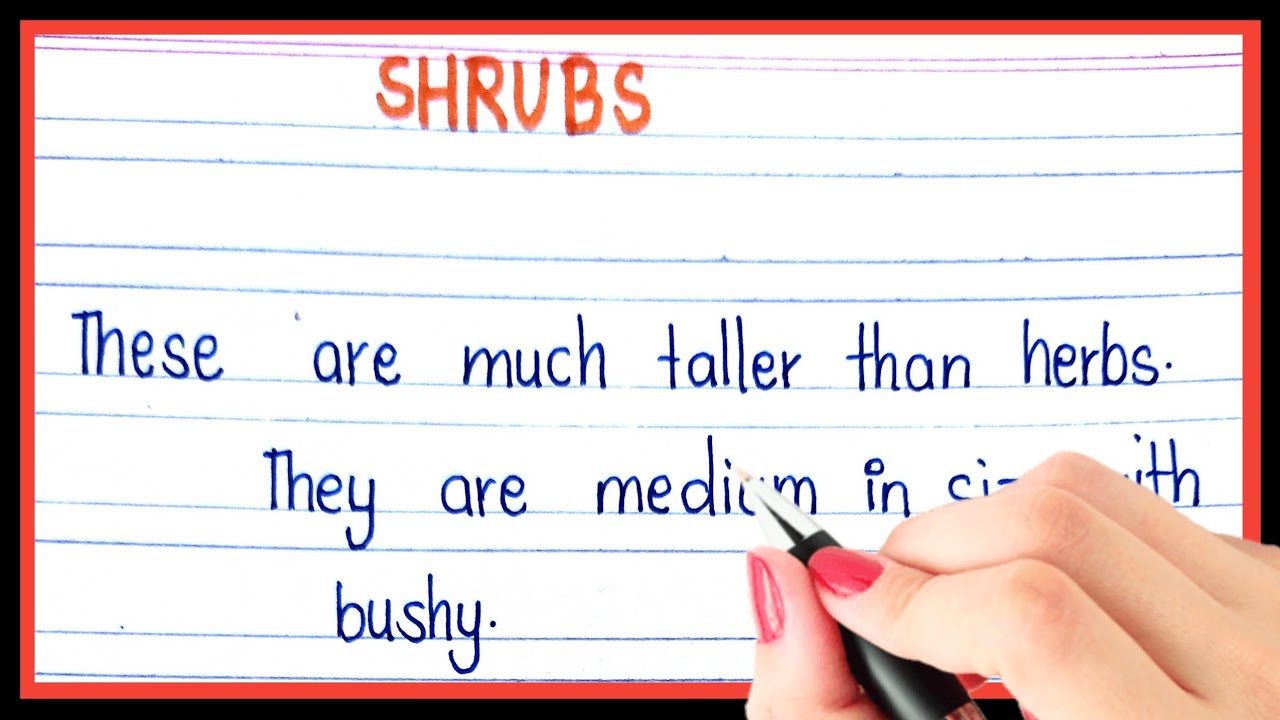 SHRUBS
These are much taller than herbs.
They are medium in with
bushy.